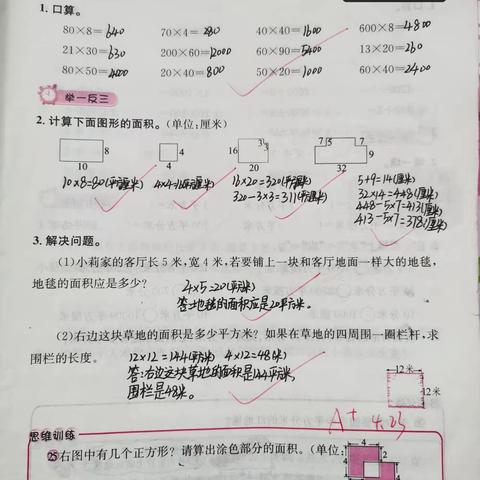 1. 口算。
80×8=640 70×4=280 40×40=1600 600×8=4800
21×30=630 200×60=12000 60×90=5400 13×20=260
80×50=4000 20×40=800 50×20=1000 60×40=2400
举一反三
2. 计算下面图形的面积。(单位:厘米)
8 10 4 4 16 3 3 20 7 5 7 9 32
10×8=80(平方厘米) 4×4=16(平方厘米) 16×20=320(平方厘米) 5+9=14(厘米)
320-3×3=311(平方厘米) 32×14=448(厘米)
448-5×7=413(厘米)
413-5×7=378(厘米)
3. 解决问题。
(1)小莉家的客厅长5米,宽4米,若要铺上一块和客厅地面一样大的地毯,
地毯的面积应是多少? 4×5=20(平方米)
答:地毯的面积应是20平方米。
(2)右边这块草地的面积是多少平方米? 如果在草地的四周围一圈栏杆,求
围栏的长度。 12×12=144(平方米) 4×12=48(米)
答:右边这块草地的面积是144平方米,
围栏是48米。
12米
12米
A+ 4.23
思维训练
25右图中有几个正方形? 请算出涂色部分的面积。(单位:
4
4 2